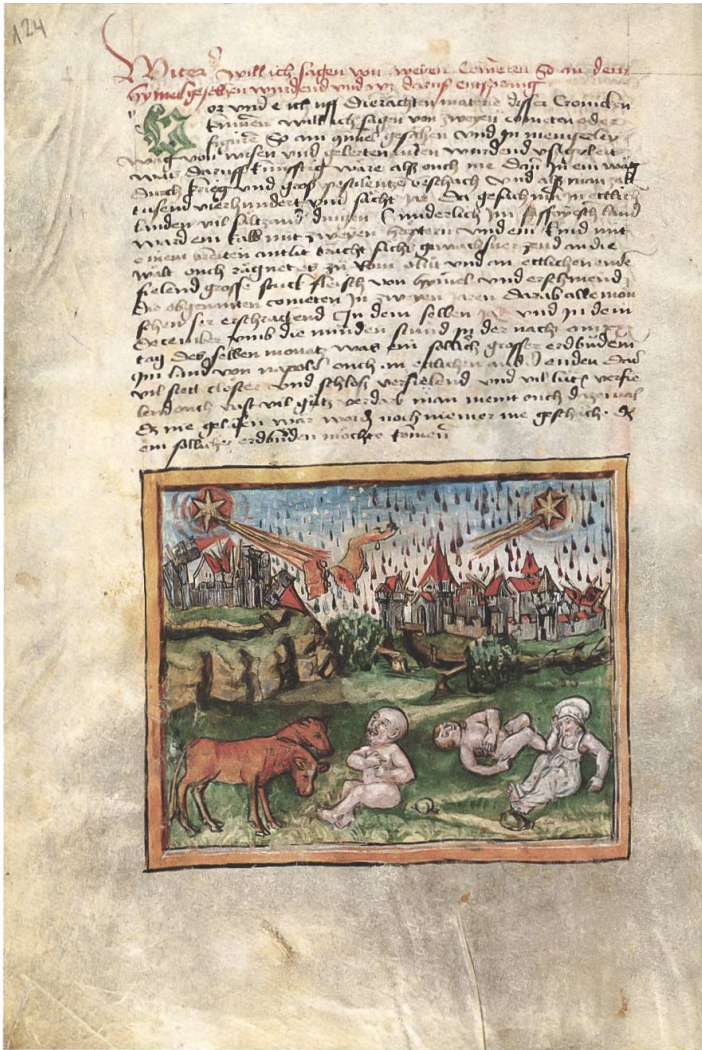 124
Witer will ich sagen von zweyen Cometen So an dem
hymel gesehen wurdend und wz daruß entsprang
Vor und e ich uff die rächten materie disser Cronicken
kumen will ich sagen von zweyen cometen oder
So am himel gesehen und in mengerley
wäg von wisen und gelerten lüten wurdend ußgeleit
was daruß künfftig wäre alß ouch me dan in ein wäg
durch krieg und groß pestilentz beschach Und alß man zalt
tusend vierhundert und sächs jar Da geschach in ettlich
landen vil seltzamer dingen Sunderlich im land
ward ein kalb mit zweyen höptern und ein kind mit
einem antlit
walt ouch rägnet es zu Rom blut und an ettlichen enden
fielend grosse stuck fleisch von hymel und erschinend
die obgenanten cometen in zweyen jaren darab alle mön
schen ser erschrackend In dem selben jar und in dem
december umb die nünden stund in der nacht am
tag des selben monatz was ein sölich grosser erdbidem
Im land von napols ouch in ettlichen andren enden das
vil stett closter und schloß verfielend und vil lüt verfie
lend ouch vast vil gutz verdarb man meint ouch dazemal
dz nie gelesen wär worden noch niemer me geschäch dz
ein söllicher erdbidem möchte komen